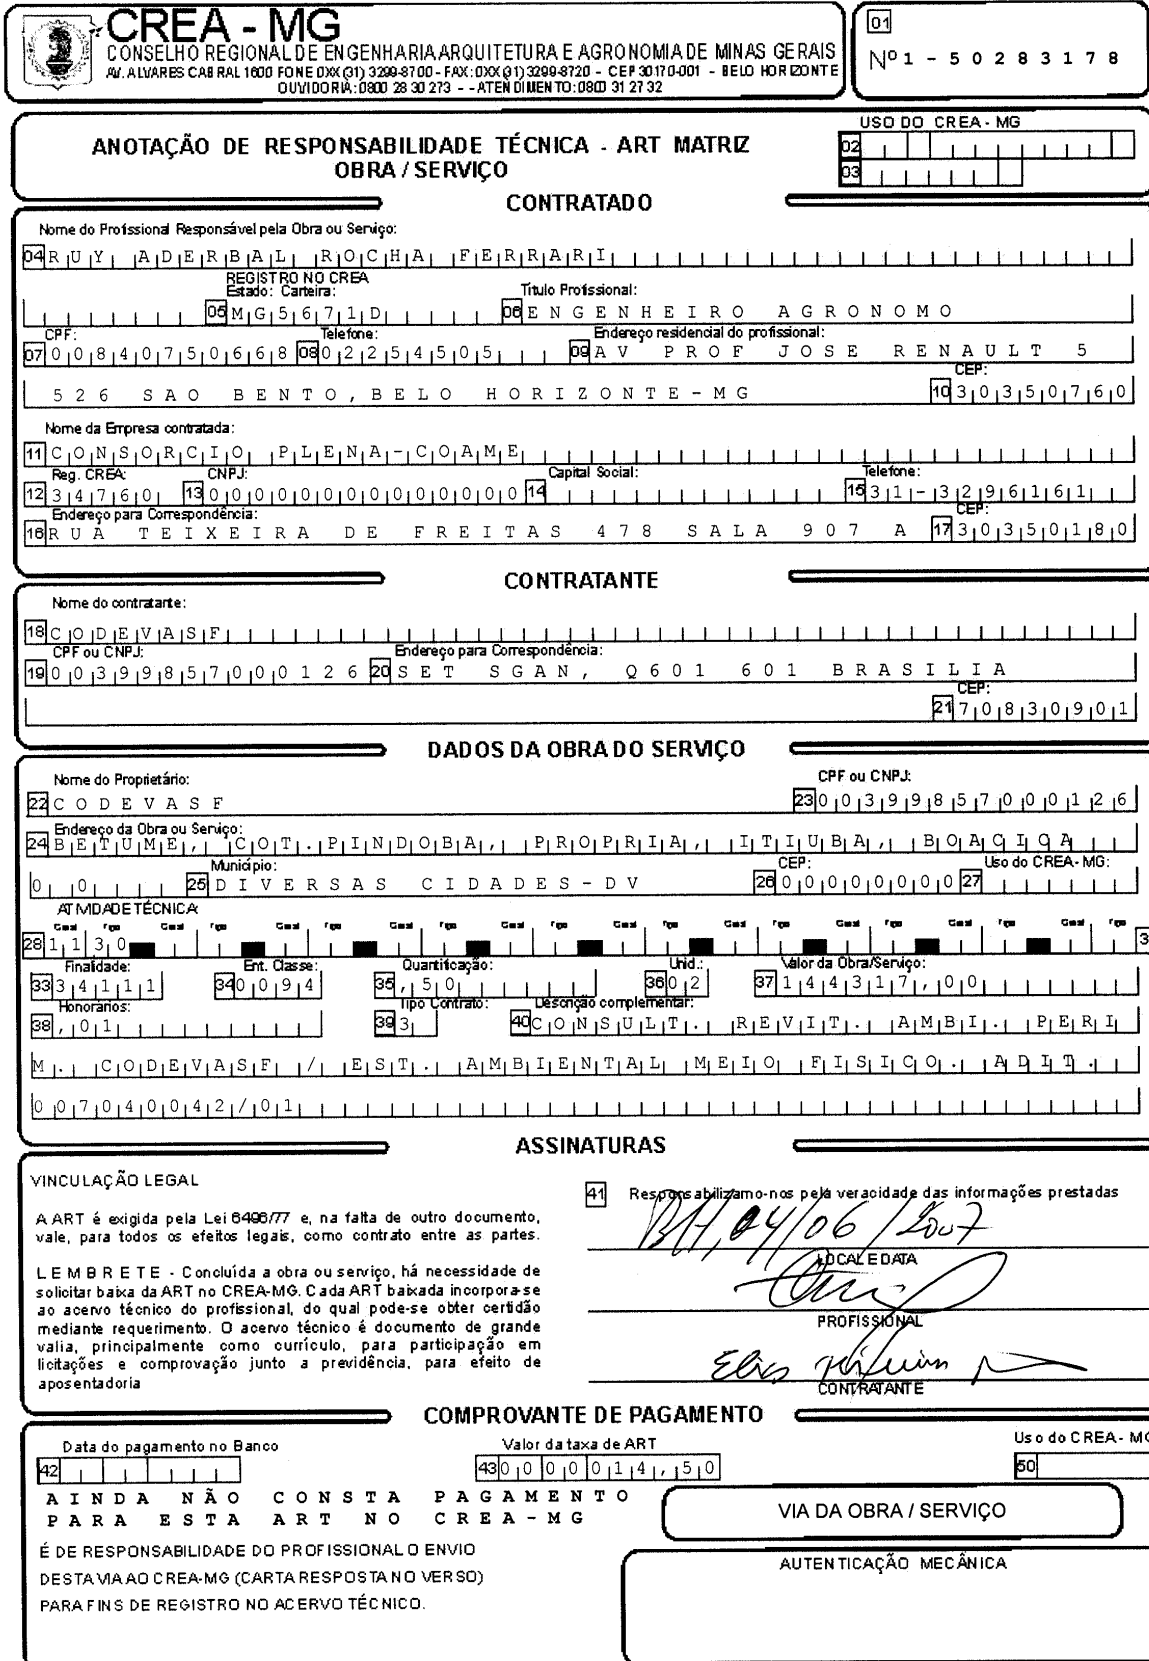 CREA - MG
CONSELHO REGIONAL DE ENGENHARIA ARQUITETURA E AGRONOMIA DE MINAS GERAIS
AV. ALVARES CABRAL 1600 FONE 0XX(31) 3299-8700 - FAX: 0XX(31) 3299-8720 - CEP 30170-001 - BELO HORIZONTE
OUVIDORIA: 0800 28 30 273 - - ATENDIMENTO: 0800 31 27 32
01
Nº 1 - 50283178
ANOTAÇÃO DE RESPONSABILIDADE TÉCNICA - ART MATRIZ
OBRA / SERVIÇO
USO DO CREA - MG
02
03
CONTRATADO
Nome do Profissional Responsável pela Obra ou Serviço:
04 RUY ADERBAL ROCHA FERRARI
REGISTRO NO CREA
Estado: Carteira: Título Profissional:
05 MG5671D 06 ENGENHEIRO AGRONOMO
CPF: Telefone: Endereço residencial do profissional:
07 00840750668 08 02254505 09 AV PROF JOSE RENAULT 5
CEP:
526 SAO BENTO, BELO HORIZONTE-MG 10 30350760
Nome da Empresa contratada:
11 CONSORCIO PLENA-COAME
Reg. CREA: CNPJ: Capital Social: Telefone:
12 34760 13 00000000000000 14 15 31-3296161
Endereço para Correspondência: CEP:
16 RUA TEIXEIRA DE FREITAS 478 SALA 907 A 17 30350180
CONTRATANTE
Nome do contratante:
18 CODEVASF
CPF ou CNPJ: Endereço para Correspondência:
19 00399857000126 20 SET SGAN, Q601 601 BRASILIA
CEP:
21 70830901
DADOS DA OBRA DO SERVIÇO
Nome do Proprietário: CPF ou CNPJ:
22 CODEVASF 23 00399857000126
Endereço da Obra ou Serviço:
24 BETUME, COT.PINDOBA, PROPRIA, ITIUBA, BOACICA
Município: CEP: Uso do CREA- MG:
0 0 25 DIVERSAS CIDADES-DV 26 00000000 27
ATIVIDADE TÉCNICA
28 1130
Finalidade: Ent. Classe: Quantificação: Unid.: Valor da Obra/Serviço:
33 34111 34 0094 35 ,50 36 02 37 144317,00
Honorários: Tipo Contrato: Descrição complementar:
38 ,01 39 3 40 CONSULT. REVIT. AMBI. PERI
M. CODEVASF / EST. AMBIENTAL MEIO FISICO. ADIT.
007040042/01
ASSINATURAS
VINCULAÇÃO LEGAL
A ART é exigida pela Lei 6496/77 e, na falta de outro documento,
vale, para todos os efeitos legais, como contrato entre as partes.
LEMBRETE - Concluída a obra ou serviço, há necessidade de
solicitar baixa da ART no CREA-MG. Cada ART baixada incorpora-se
ao acervo técnico do profissional, do qual pode-se obter certidão
mediante requerimento. O acervo técnico é documento de grande
valia, principalmente como currículo, para participação em
licitações e comprovação junto a previdência, para efeito de
aposentadoria
41 Responsabilizamo-nos pela veracidade das informações prestadas
BH, 04/06/2007
LOCAL E DATA
PROFISSIONAL
CONTRATANTE
COMPROVANTE DE PAGAMENTO
Data do pagamento no Banco Valor da taxa de ART Uso do CREA - MG
42 43 0000014,50 50
AINDA NÃO CONSTA PAGAMENTO
PARA ESTA ART NO CREA-MG
VIA DA OBRA / SERVIÇO
É DE RESPONSABILIDADE DO PROFISSIONAL O ENVIO
DESTA VIA AO CREA-MG (CARTA RESPOSTA NO VERSO)
PARA FINS DE REGISTRO NO ACERVO TÉCNICO.
AUTENTICAÇÃO MECÂNICA